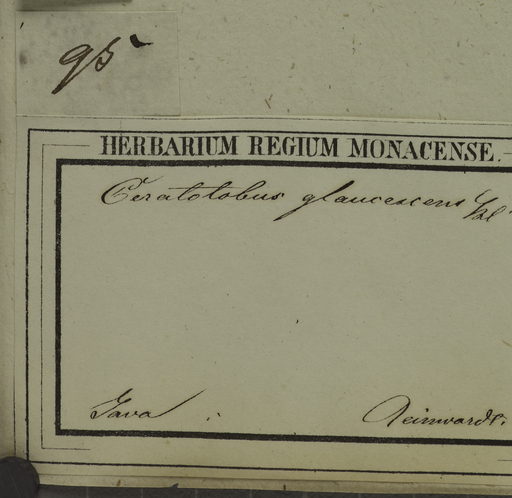 95
HERBARIUM REGIUM MONACENSE.
Ceratolobus glaucescens Bl.
Java Reinwardt.